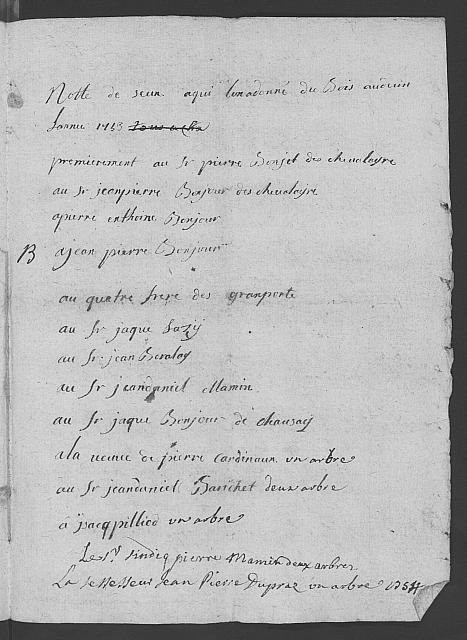 Notte de seux aqui lon adonné du Bois audein
Lannee 1753
premierement au Sr pierre Bonjet des chevalayre
au Sr jeanpierre Bonjour des chevalayre
apierre enthoine Bonjour
B ajean pierre Bonjour
au quatre frere des granporte
au Sr jaque
au Sr jean
au Sr jeandaniel Mamin
au Sr jaque Bonjour de
ala veuve de pierre Cardinaux un arbre
au Sr jeandaniel Barichet deux arbre
a jsacq pilliod un arbre
Le Sr Sindiq pierre Mamin deux arbres
La sesseseur jean Pierre Dupraz un arbre 1754